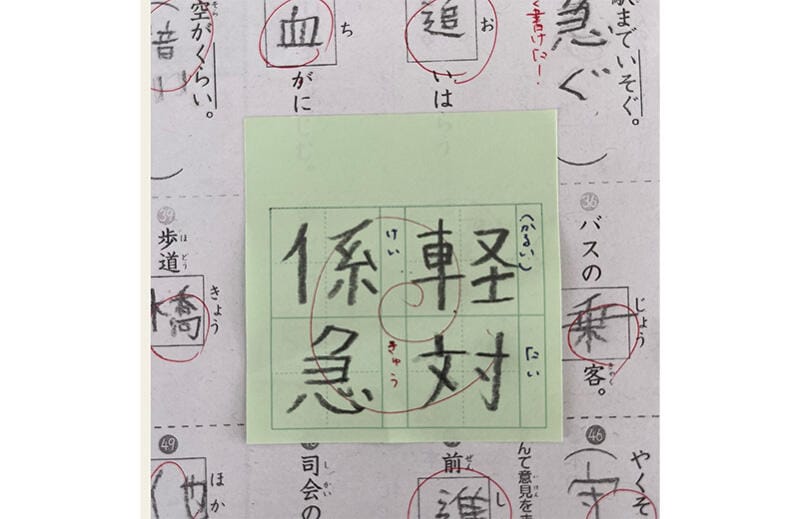 駅までいそぐ。
急ぐ
く書けた!
お
追いは
ち
血がに
空がくらい。
そら
(かるい)
軽
たい
対
けい
係
きゅう
急
36
バスの乗客。
じょう
きゃく
39
歩道橋
ほどう
きょう
46
やくそ
守
んて意見を
いけん
前進
ぜん
し
司会の
しかい
49
ほか
他